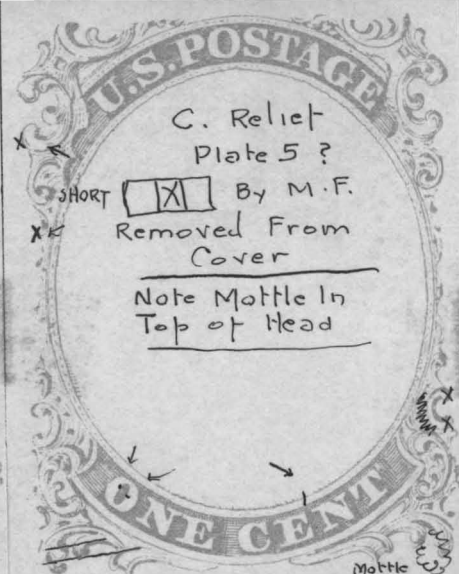 U.S. POSTAGE
C. Relief
Plate 5 ?
SHORT X By M.F.
X
X
Removed From
Cover
Note Mottle In
Top of Head
X
X
ONE CENT
Mottle